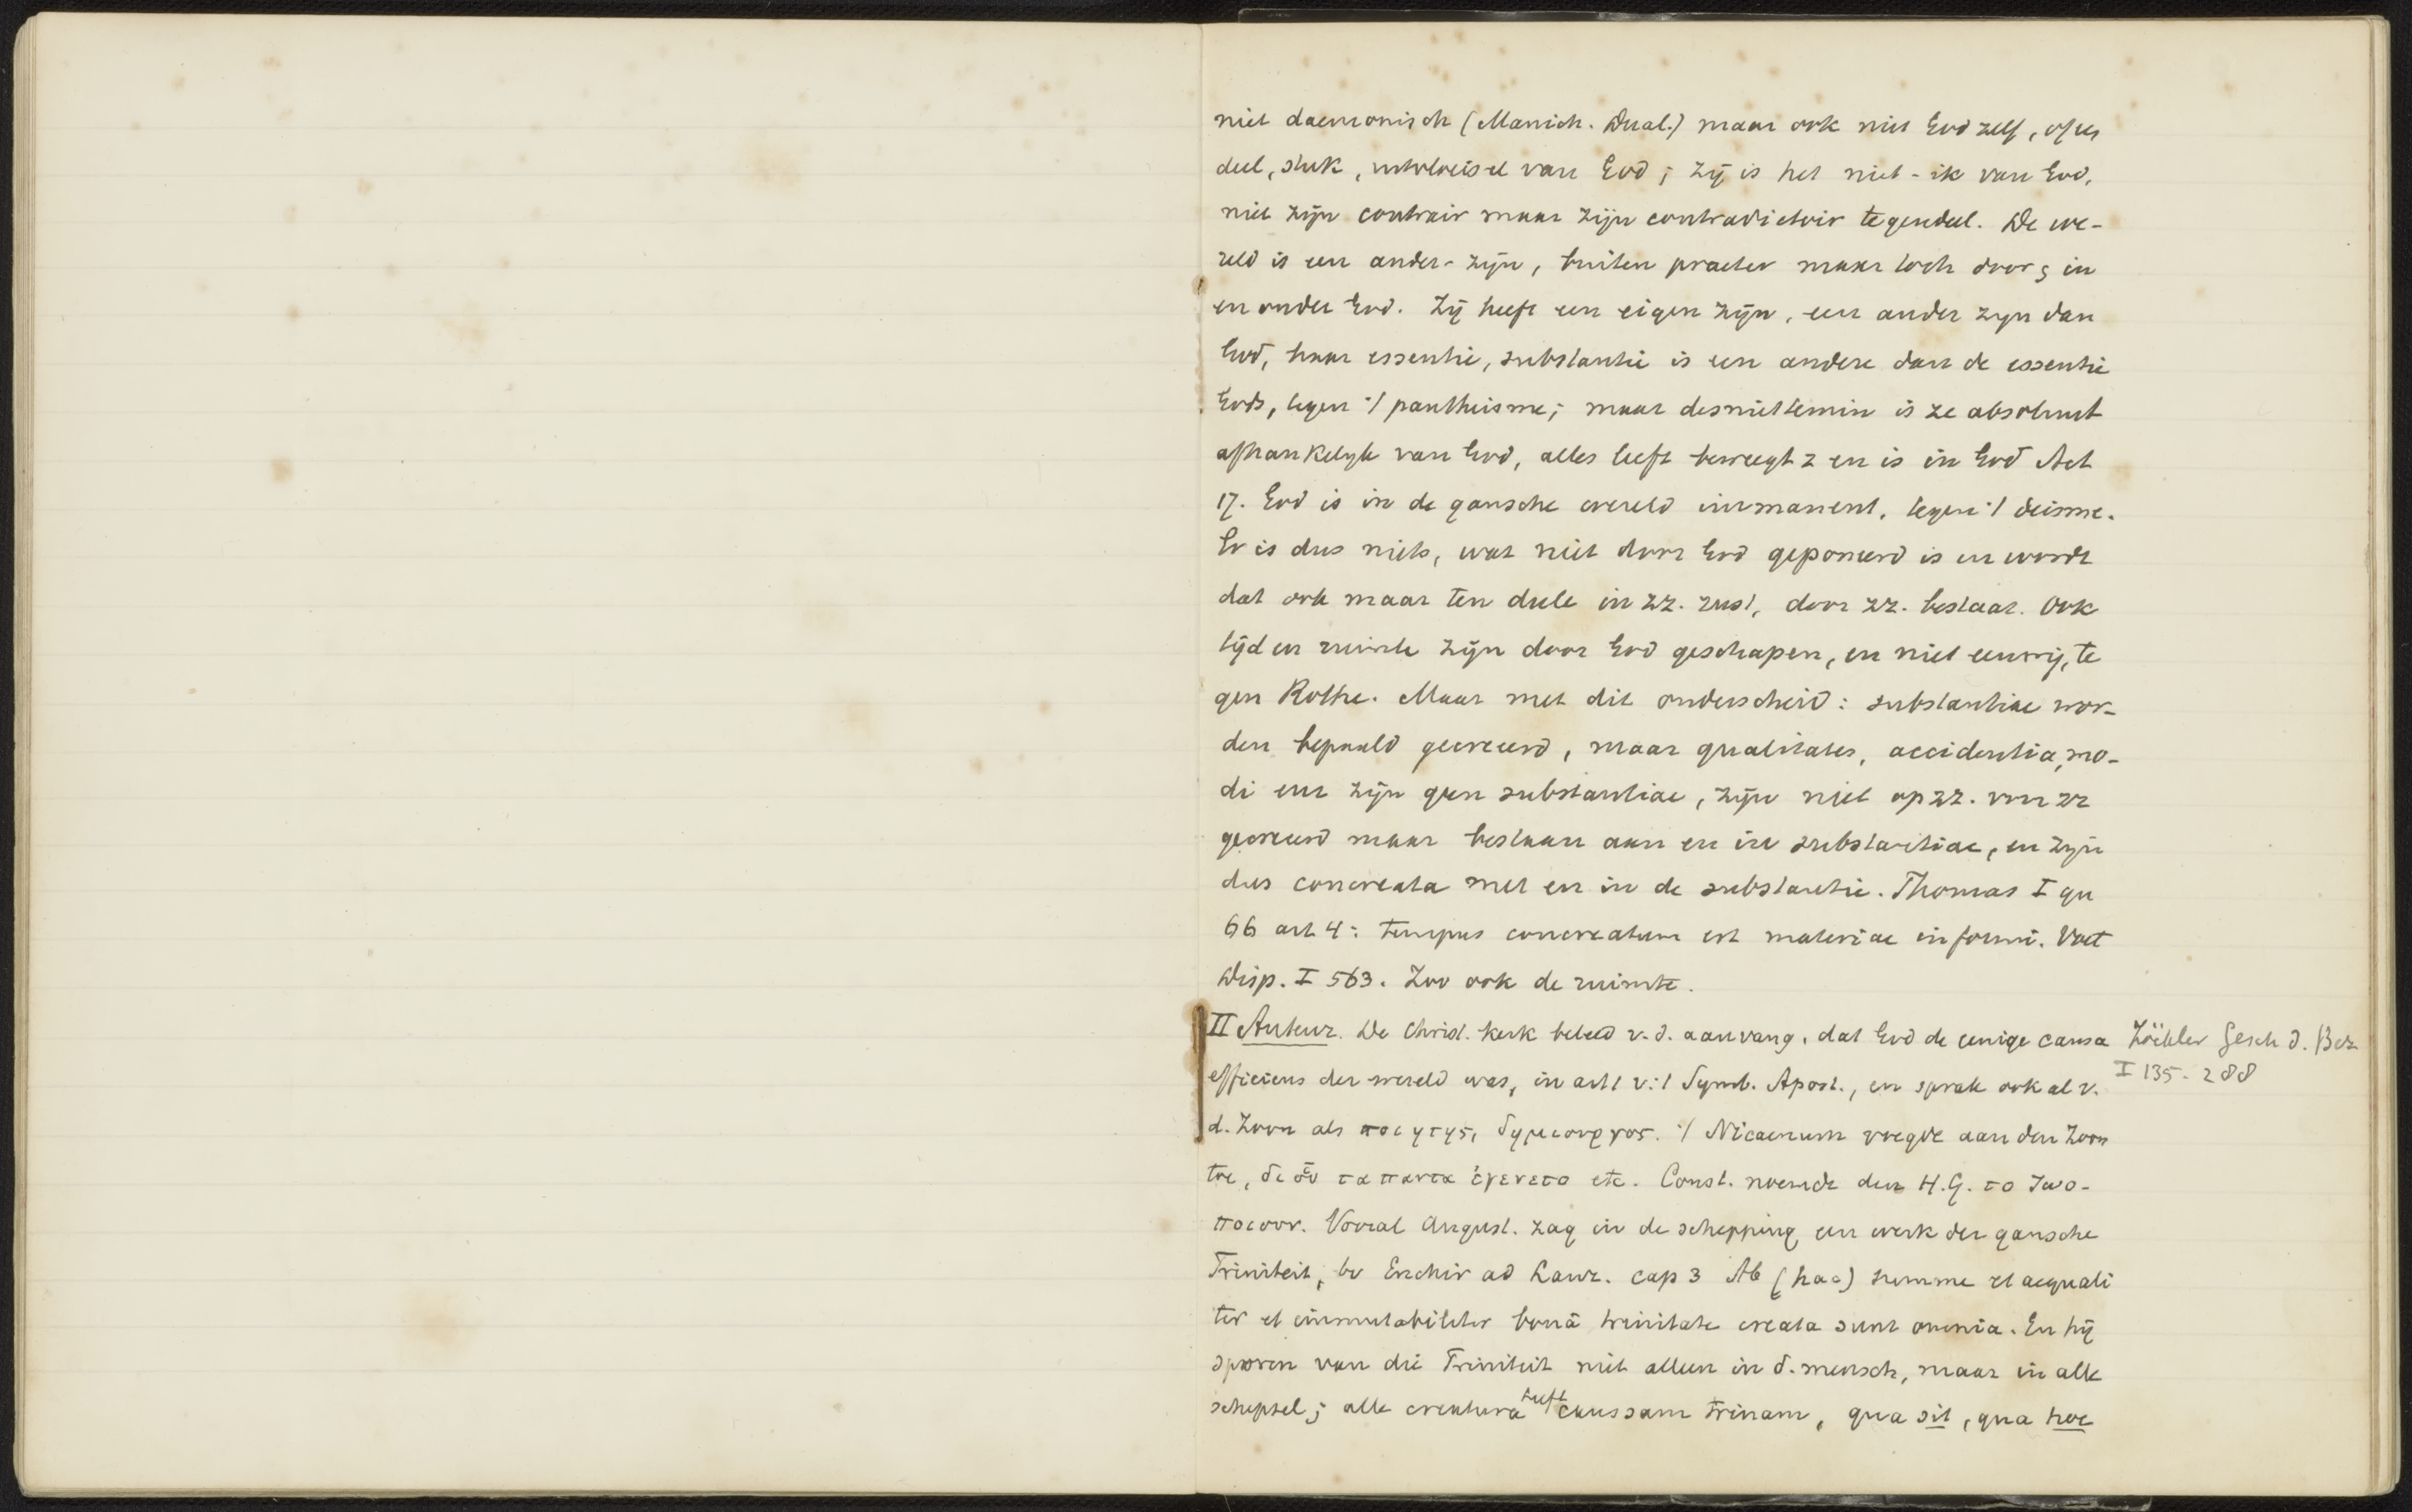 niet daemonisch (Manich. Dual.) maar ook niet God zelf, of een
deel, stuk, uitvloeisel van God; zij is het niet-ik van God,
niet zijn contrair maar zijn contradictoir tegendeel. De we-
reld is een ander-zijn, buiten praeter maar toch door, in
en onder God. Zij heeft een eigen zijn, een ander zijn dan
God, haar essentie, substantie is een andere dan de essentie
Gods, tegen 't pantheisme; maar desniettemin is ze absoluut
afhankelijk van God, alles leeft beweegt z en is in God Act
17. God is in de gansche wereld immanent, tegen 't deisme.
Er is dus niets, wat niet door God geponeerd is en wordt
dat ook maar ten deele in zz. rust, door zz. bestaat. Ook
tijd en ruimte zijn door God geschapen, en niet eeuwig, te
gen Rothe. Maar met dit onderscheid: substantiae wor-
den bepaald gecreeerd, maar qualitates, accidentia, mo-
di enz zijn geen substantiae, zijn niet op zz. voor zz
gecreeerd maar bestaan aan en in substantiae, en zijn
dus concreata met en in de substantie. Thomas I qu
66 art 4: tempus concreatum est materiae informi. Voet
Disp. I 563. Zoo ook de ruimte.
II Auteur. De Christ. kerk beleed v. d. aanvang, dat God de eenige causa
efficiens der wereld was, in art 1 v. 't Symb. Apost., en sprak ook al v.
d. Zoon als ποιητης, δημιουργος. 't Nicaenum voegde aan den Zoon
toe, δι οὑ τα παντα ἐγενετο etc. Const. noemde den H.G. το ζωο-
ποιουν. Vooral August. zag in de schepping een werk der gansche
Triniteit, bv Enchir ad Laur. cap 3 Ab (hac) summe et aequali
ter et immutabiliter bonâ trinitate creata sunt omnia. En hij
sporen van die Triniteit niet alleen in d. mensch, maar in alle
schepsel; alle creatura heeft caussam trinam, qua sit, qua hoc
Zöckler Gesch d. Bez
I 135-288